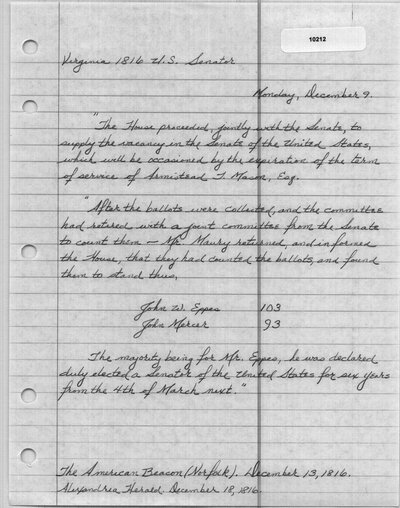 10212
Virginia 1816 U.S. Senator
Monday, December 9.
"The House proceeded, jointly with the Senate, to
supply the vacancy in the Senate of the United States,
which will be occasioned by the expiration of the term
of service of Armistead T. Mason, Esq.
"After the ballots were collected, and the committee
had retired with a joint committee from the Senate
to count them — Mr. Maury returned, and informed
the House, that they had counted the ballots, and found
them to stand thus,
John W. Eppes 103
John Mercer 93
The majority being for Mr. Eppes, he was declared
duly elected a Senator of the United States for six years
from the 4th of March next."
The American Beacon (Norfolk). December 13, 1816.
Alexandria Herald. December 18, 1816.